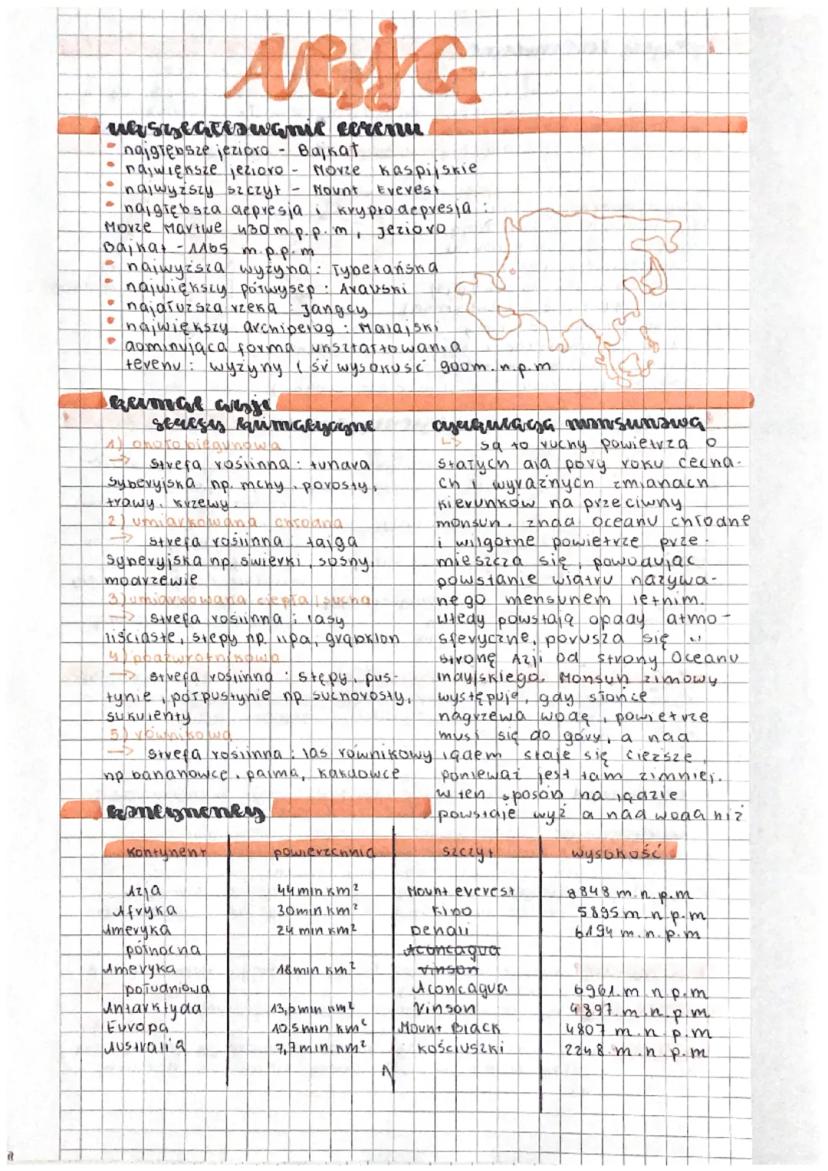 Azja
ukształtowanie terenu
• najgłębsze jezioro - Bajkał
• największe jezioro - Morze Kaspijskie
• najwyższy szczyt - Mount Everest
• najgłębsza depresja i kryptodepresja :
Morze Martwe 430 m.p.p.m, jezioro
Bajkał - 1165 m.p.p.m
• najwyższa wyżyna : Tybetańska
• największy półwysep : Arabski
• najdłuższa rzeka : Jangcy
• największy archipelag : Malajski
• dominująca forma ukształtowania
terenu : wyżyny ( śr wysokość 900m.n.p.m
klimat azji
strefy klimatyczne
1) okołobiegunowa
→ strefa roślinna : tundra
syberyjska np. mchy, porosty,
trawy, krzewy
2) umiarkowana chłodna
→ strefa roślinna : tajga
syberyjska np. świerki, sosny,
modrzewie
3) umiarkowana ciepła, sucha
→ strefa roślinna : lasy
liściaste, stepy np. lipa, grab, klon
4) podzwrotnikowa
→ strefa roślinna : stępy, pus-
tynie, półpustynie np suchorosty,
sukulenty
5) równikowa
→ strefa roślinna : las równikowy
np bananowce, palma, kakaowce
cyrkulacja monsunowa
↳ są to ruchy powietrza o
stałych dla pory roku cecha-
ch i wyraźnych zmianach
kierunków na przeciwny
monsun. znad Oceanu chłodne
i wilgotne powietrze prze-
mieszcza się, powodując
powstanie wiatru nazywa-
nego mensunem letnim.
Wtedy powstają opady atmo-
sferyczne, porusza się w
stronę Azji od strony Oceanu
Indyjskiego. Monsun zimowy
występuje, gdy słońce
nagrzewa wodę, powietrze
musi się do góry, a nad
lądem staje się cięższe,
ponieważ jest tam zimniej.
W ten sposób na lądzie
powstaje wyż a nad wodą niż
kontynenty
kontynent powierzchnia szczyt wysokość
Azja 44 mln km² Mount everest 8848 m.n.p.m
Afryka 30 mln km² Kibo 5895 m.n.p.m
Ameryka 24 mln km² Denali 6194 m.n.p.m
północna Aconcagua
Ameryka 18 mln km² Vinson
południowa Aconcagua 6961 m n p.m
Antarktyda 13,6 mln km² Vinson 4897 m n p.m
Europa 10,5 mln km² Mount Black 4807 m n p.m
Australia 7,7 mln km² Kościuszki 2248 m.n p.m